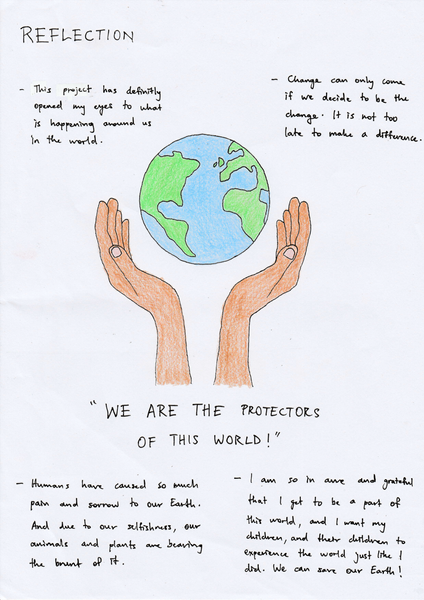 REFLECTION
- This project has definitly
opened my eyes to what
is happening around us
in the world.
- Change can only come
if we decide to be the
change. It is not too
late to make a difference.
"WE ARE THE PROTECTORS
OF THIS WORLD!"
- Humans have caused so much
pain and sorrow to our Earth.
And due to our selfishness, our
animals and plants are bearing
the brunt of it.
- I am so in awe and grateful
that I get to be a part of
this world, and I want my
children, and their children to
experience the world just like I
did. We can save our Earth!